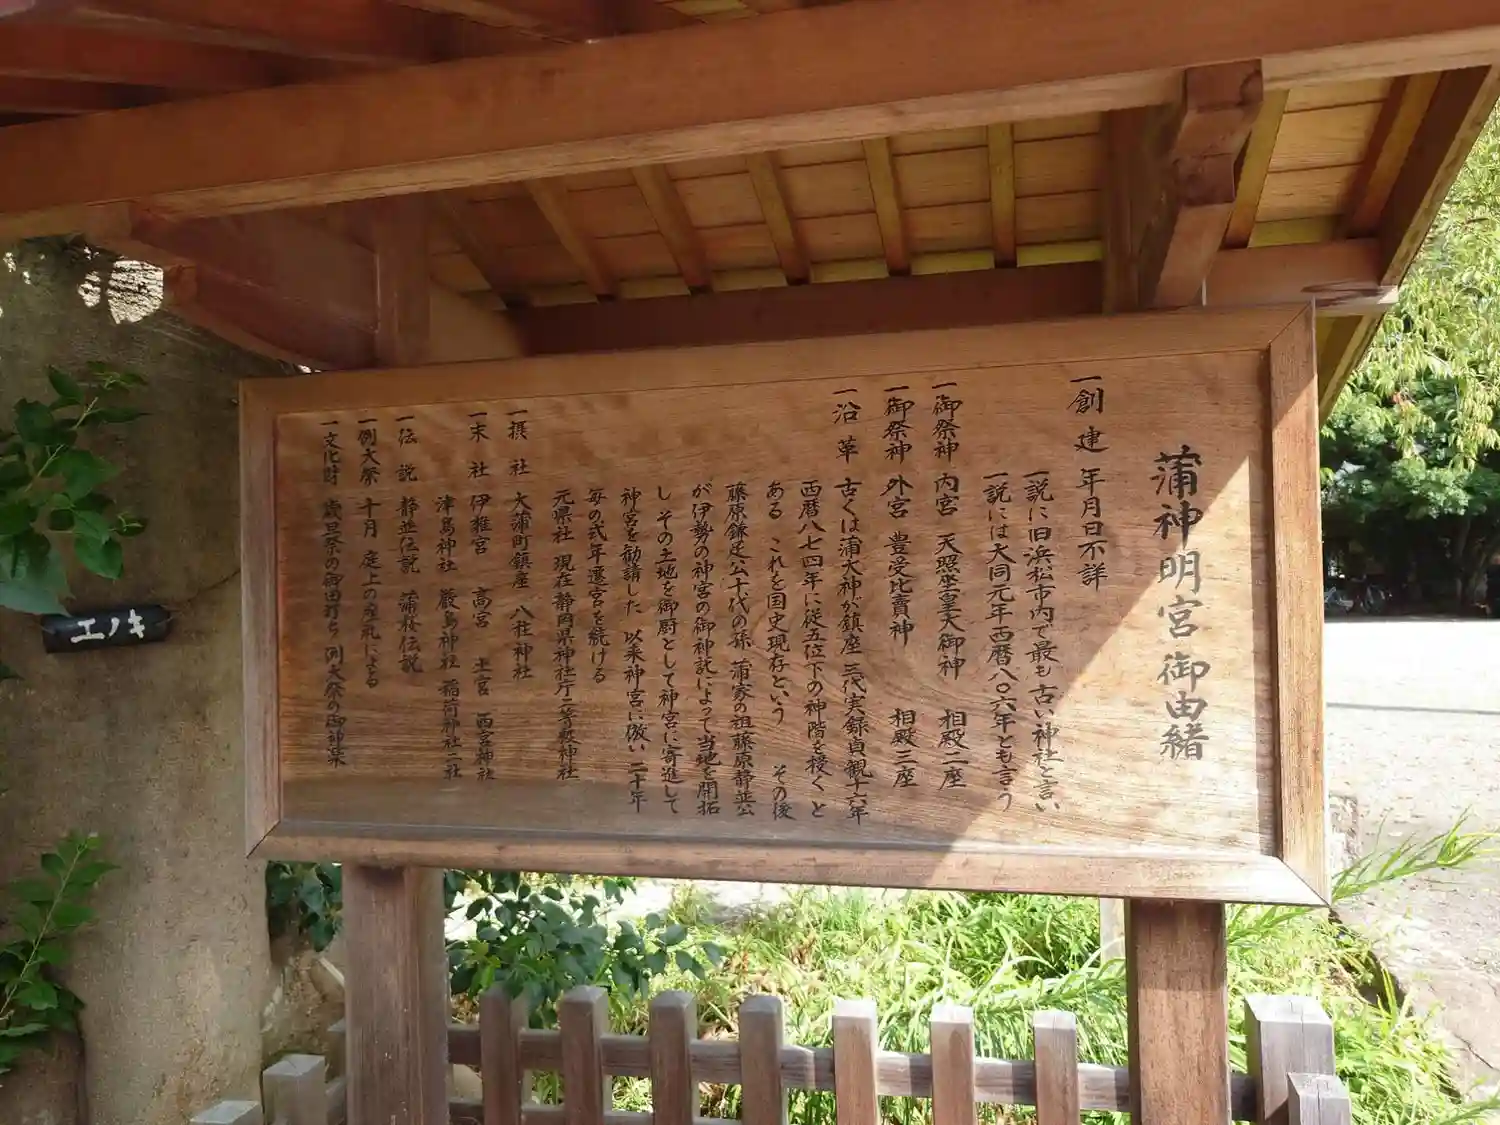 蒲神明宮御由緒
一創建 年月日不詳
一説に旧浜松市内で最も古い神社と言い
一説には大同元年西暦八〇六年とも言う
一御祭神 内宮 天照坐皇大御神 相殿二座
一御祭神 外宮 豊受比賣神 相殿三座
一沿革 古くは蒲大神が鎮座 三代実録貞観十六年
西暦八七四年に従五位下の神階を授くと
ある これを国史現存という その後
藤原鎌足公十代の孫 蒲家の祖藤原静並公
が伊勢の神宮の御神託によって当地を開拓
し その土地を御厨として神宮に寄進して
神宮を勧請した 以来神宮に倣い二十年
毎の式年遷宮を続ける
元県社 現在静岡県神社庁二等級神社
一摂社 大蒲町鎮座 八柱神社
一末社 伊雑宮 高宮 土宮 西宮神社
津島神社 厳島神社 稲荷神社二社
一伝説 静並伝説 蒲桜伝説
一例大祭 十月 庭上の座礼による
一文化財 歳旦祭の御田打ち 例大祭の御神楽
エノキ